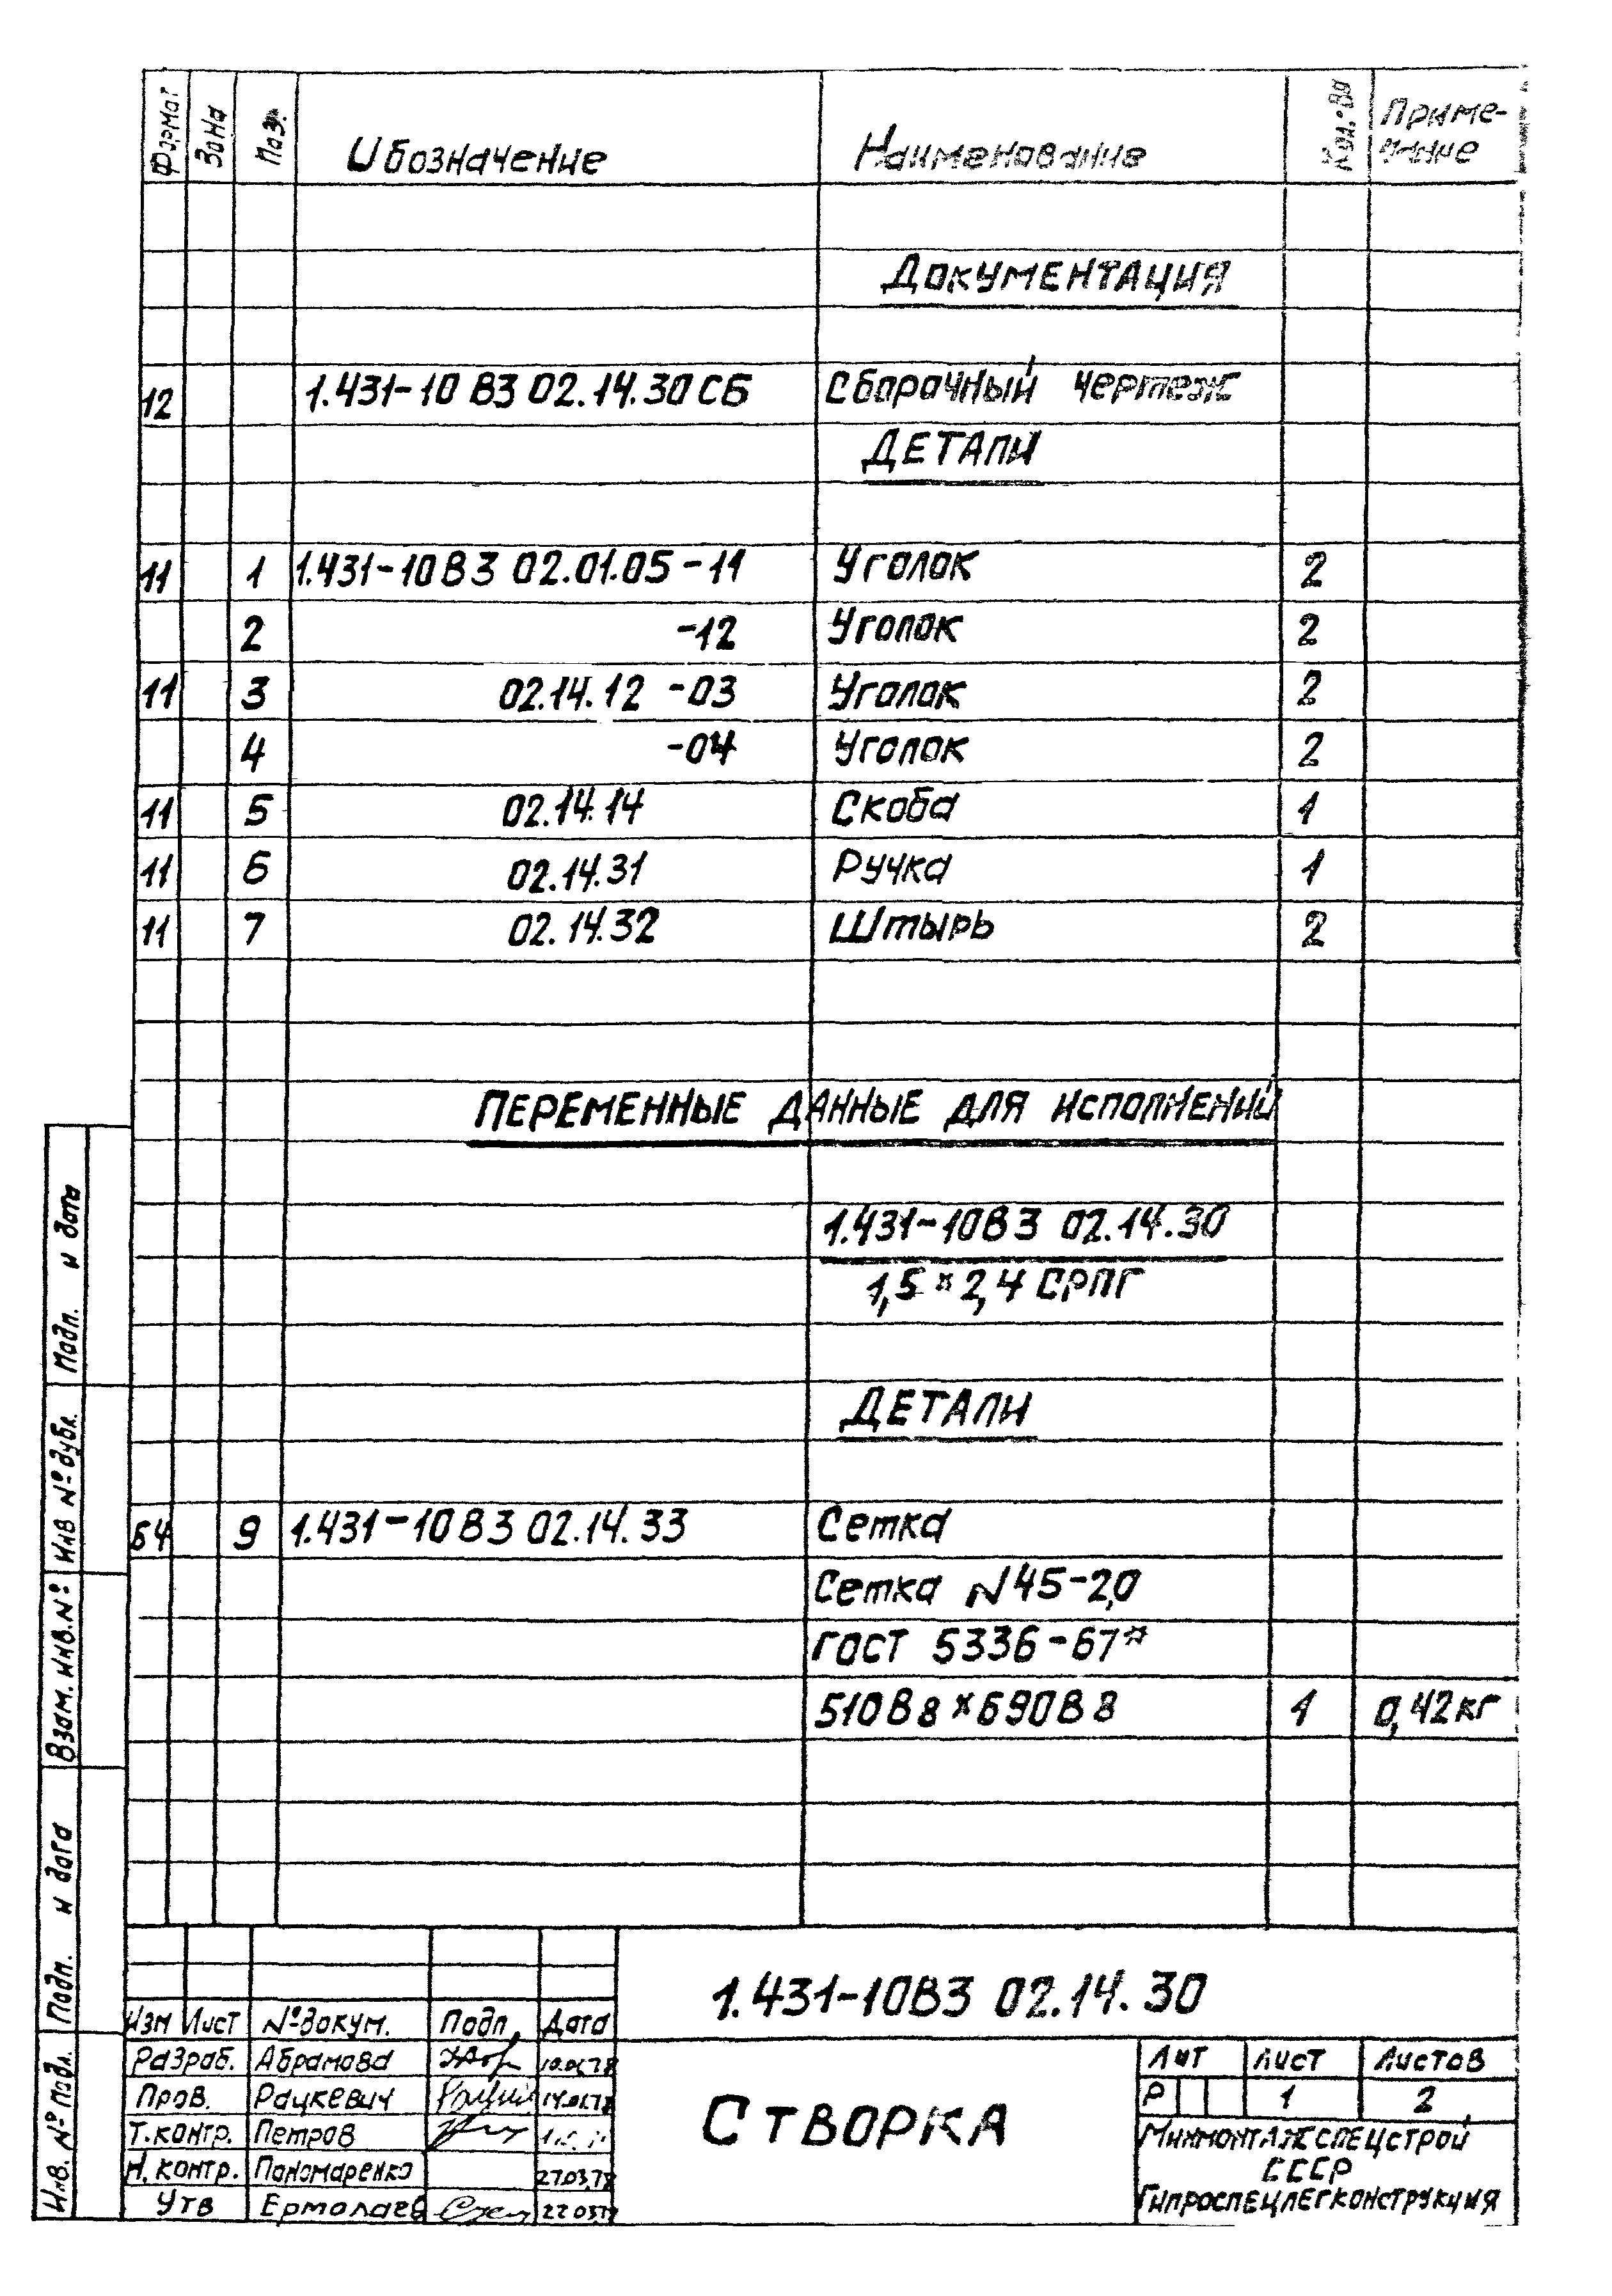 Формат Зона Поз. Обозначение Наименование Кол.-во Приме-
чание
Документация
12 1.431-10 В3 02.14.30 СБ Сборочный чертеж
Детали
11 1 1.431-10 В3 02.01.05 -11 Уголок 2
2 -12 Уголок 2
11 3 02.14.12 -03 Уголок 2
4 -04 Уголок 2
11 5 02.14.14 Скоба 1
11 6 02.14.31 Ручка 1
11 7 02.14.32 Штырь 2
Переменные данные для исполнений
1.431-10 В3 02.14.30
1,5 × 2,4 СРПГ
Детали
Б4 9 1.431-10 В3 02.14.33 Сетка
Сетка N 45-2,0
ГОСТ 5336-67*
510 В8 × 690 В8 1 0,42кг
1.431-10В3 02.14.30
Изм Лист №докум. Подп. Дата
Разраб. Абрамова
Пров. Рацкевич
Т.контр. Петров
Н.контр. Пономаренко 27.03.78
Утв Ермолаев
Створка
Лит Лист Листов
Р 1 2
Минмонтажспецстрой
СССР
Гипроспецлегконструкция
Подп. и дата
Инв № дубл.
Взам. инв. №
Подп. и дата
Инв. № подл.